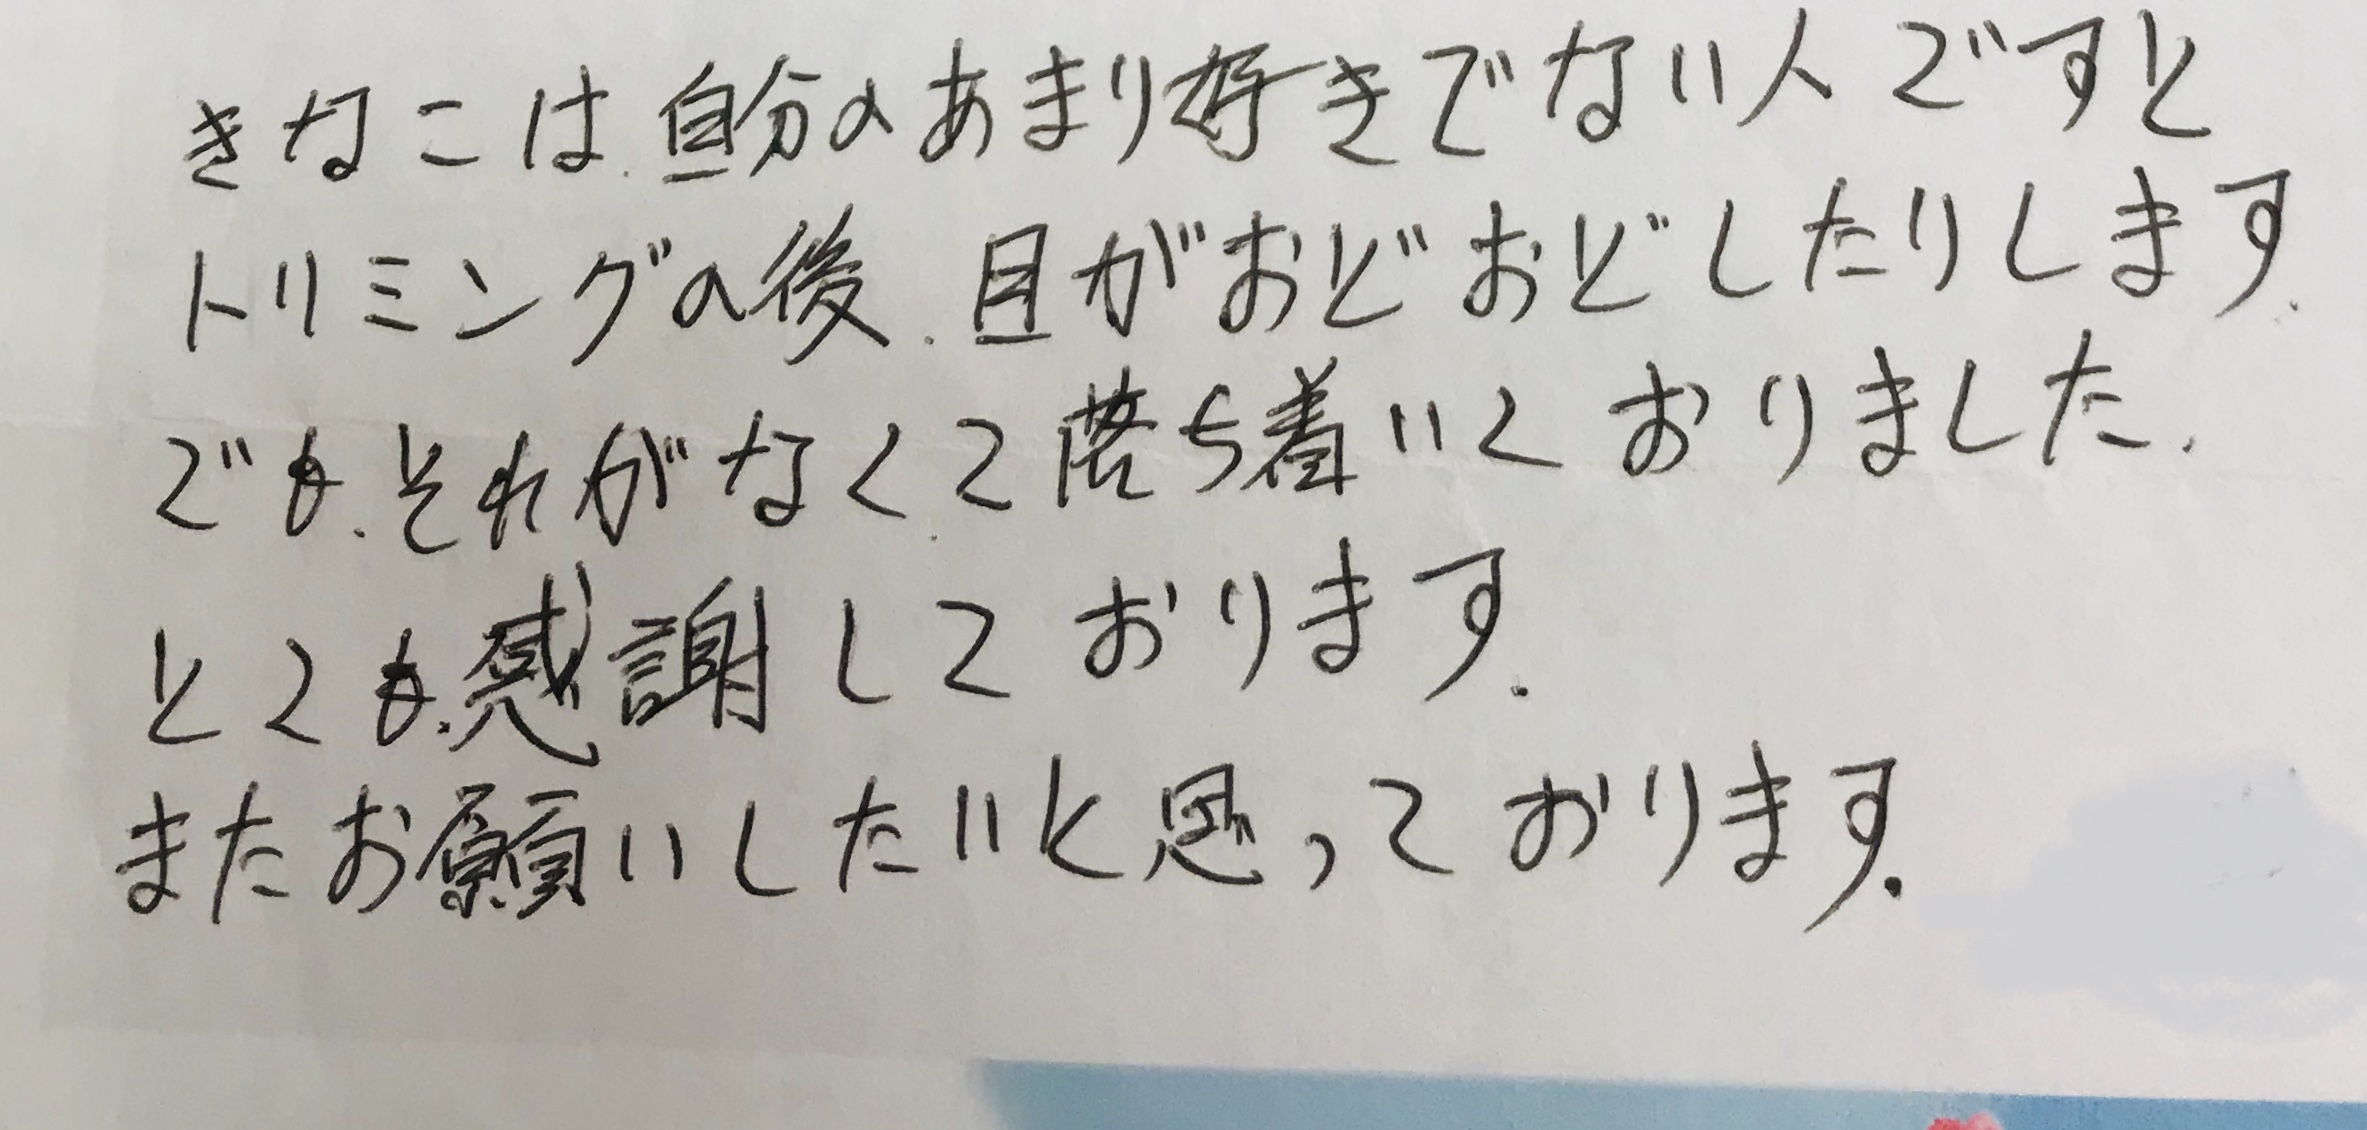 きなこは、自分のあまり好きでない人ですと
トリミングの後、目がおどおどしたりします。
でも、それがなくて落ち着いておりました。
とても、感謝しております。
またお願いしたいと思っております。